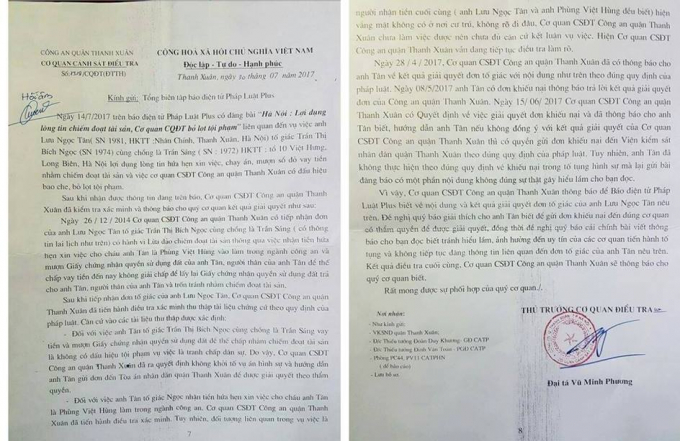 CÔNG AN QUẬN THANH XUÂN
CƠ QUAN CẢNH SÁT ĐIỀU TRA
/CQĐT(ĐTTH)
CỘNG HOÀ XÃ HỘI CHỦ NGHĨA VIỆT NAM
Độc lập - Tự do - Hạnh phúc
Thanh Xuân, ngày 20 tháng 07 năm 2017
Kính gửi: Tổng biên tập báo điện tử Pháp Luật Plus
Ngày 14/7/2017 trên báo điện tử Pháp Luật Plus có đăng bài "Hà Nội : Lợi dụng
lòng tin chiếm đoạt tài sản, Cơ quan CQĐT bỏ lọt tội phạm" liên quan đến vụ việc anh
Lưu Ngọc Tân (SN 1981, HKTT :Nhân Chính, Thanh Xuân, Hà Nội) tố giác Trần Thị
Bích Ngọc (SN 1974) cùng chồng là Trần Sáng ( SN : 1972) HKTT : tổ 10 Việt Hưng,
Long Biên, Hà Nội lợi dụng lòng tin hứa hẹn xin việc, chạy án, mượn sổ đỏ vay tiền
nhằm chiếm đoạt tài sản và việc cơ quan CSĐT Công an quận Thanh Xuân có dấu hiệu
bao che, bỏ lọt tội phạm.
Sau khi nhận được thông tin đăng trên báo, Cơ quan CSĐT Công an quận Thanh
Xuân đã kiểm tra xác minh và thông báo cho quý cơ quan kết quả giải quyết như sau:
Ngày 26 / 12 / 2014 Cơ quan CSĐT Công an quận Thanh Xuân có tiếp nhận đơn
của anh Lưu Ngọc Tân tố giác Trần Thị Bích Ngọc cùng chồng là Trần Sáng ( có thông
tin lai lịch như trên) có hành vi Lừa đảo chiếm đoạt tài sản thông qua việc nhận tiền hứa
hẹn xin việc cho cháu anh Tân là Phùng Việt Hùng vào làm trong ngành công an và
mượn Giấy chứng nhận quyền sử dụng đất của anh Tân, người thân của anh Tân để thế
chấp vay tiền đến nay không giải chấp để lấy lại Giấy chứng nhận quyền sử dụng đất trả
cho anh Tân, người thân của anh Tân và trốn tránh nhằm chiếm đoạt tài sản.
Sau khi tiếp nhận đơn tố giác của anh Lưu Ngọc Tân, Cơ quan CSĐT Công an quận
Thanh Xuân đã tiến hành điều tra xác minh thu thập tài liệu chứng cứ theo quy định của
pháp luật. Căn cứ vào các tài liệu thu thập được xác định:
- Đối với việc anh Tân tố giác Trần Thị Bích Ngọc cùng chồng là Trần Sáng vay
tiền và mượn Giấy chứng nhận quyền sử dụng đất để thế chấp nhằm chiếm đoạt tài sản
là không có dấu hiệu tội phạm vụ việc là tranh chấp dân sự. Do vậy, Cơ quan CSĐT
Công an quận Thanh Xuân đã ra quyết định không khởi tố vụ án hình sự và hướng dẫn
anh Tân gửi đơn đến Tòa án nhân dân quận Thanh Xuân để được giải quyết theo thẩm
quyền.
- Đối với việc anh Tân tố giác Ngọc nhận tiền hứa hẹn xin việc cho cháu anh Tân
là Phùng Việt Hùng làm trong ngành công an. Cơ quan CSĐT Công an quận Thanh
Xuân đã tiến hành điều tra xác minh. Tuy nhiên, đối tượng liên quan trong vụ việc là
7
người nhận tiền cuối cùng ( anh Lưu Ngọc Tân và anh Phùng Việt Hùng đều biết) hiện
vắng mặt không có ở nơi cư trú, không rõ đi đâu, Cơ quan CSĐT Công an quận Thanh
Xuân chưa làm việc được nên chưa đủ căn cứ kết luận vụ việc. Hiện Cơ quan CSĐT
Công an quận Thanh Xuân vẫn đang tiếp tục điều tra làm rõ.
Ngày 28 / 4 / 2017, Cơ quan CSĐT Công an quận Thanh Xuân đã có thông báo cho
anh Tân về kết quả giải quyết đơn tố giác với nội dung như trên theo đúng quy định của
pháp luật. Ngày 08/5/2017 anh Tân có đơn khiếu nại thông báo trả lời kết quả giải quyết
đơn của Công an quận Thanh Xuân. Ngày 15/ 06/ 2017 Cơ quan CSĐT Công an quận
Thanh Xuân có Quyết định về việc giải quyết đơn khiếu nại và đã thông báo cho anh
Tân biết, hướng dẫn anh Tân nếu không đồng ý với kết quả giải quyết của Cơ quan
CSĐT Công an quận Thanh Xuân thì có quyền gửi đơn khiếu nại đến Viện kiểm sát
nhân dân quận Thanh Xuân theo đúng quy định của pháp luật. Tuy nhiên, anh Tân đã
không thực hiện theo đúng quy định về khiếu nại trong tố tụng hình sự mà lại gửi bài
đăng báo có một phần nội dung không đúng sự thật gây hiểu lầm cho bạn đọc.
Vì vậy, Cơ quan CSĐT Công an quận Thanh Xuân thông báo để Báo điện tử Pháp
Luật Plus biết về nội dung và kết quả giải quyết đơn của anh Lưu Ngọc Tân nêu
trên. Đề nghị quý báo giải thích cho anh Tân biết để gửi đơn khiếu nại đến đúng cơ quan
có thẩm quyền để được giải quyết, đồng thời đề nghị quý báo cải chính bài viết thông
báo cho bạn đọc biết tránh hiểu lầm, ảnh hưởng đến uy tín của các cơ quan tiến hành tố
tụng và không tiếp tục đăng thông tin liên quan đến đơn tố giác của anh Tân nêu trên.
Kết quả điều tra cuối cùng, Cơ quan CSĐT Công an quận Thanh Xuân sẽ thông báo cho
quý cơ quan biết.
Rất mong được sự phối hợp của quý cơ quan./.
Nơi nhận:
- Như kính gửi;
- VKSND quận Thanh Xuân;
- Đ/c Thiếu tướng Đoàn Duy Khương- GĐ CATP
- Đ/c Thiếu tướng Đinh Văn Toản - PGĐ CATP
- Phòng PC44, PV11 CATPHN
( để báo cáo)
- Lưu hồ sơ.
THỦ TRƯỞNG CƠ QUAN ĐIỀU TRA
Đại tá Vũ Minh Phương
8